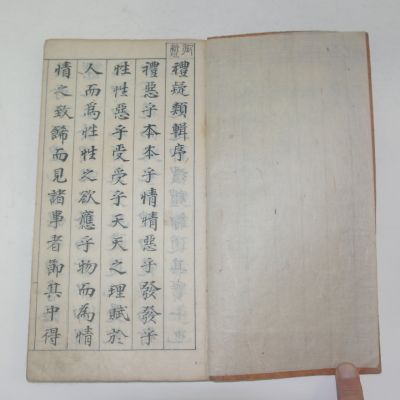 禮疑類輯序
禮惡乎本本乎情情惡乎發發乎
性性惡乎受受乎天天之理賦於
人而爲性性之欲應乎物而爲情
情之致飾而見諸事者節其中得